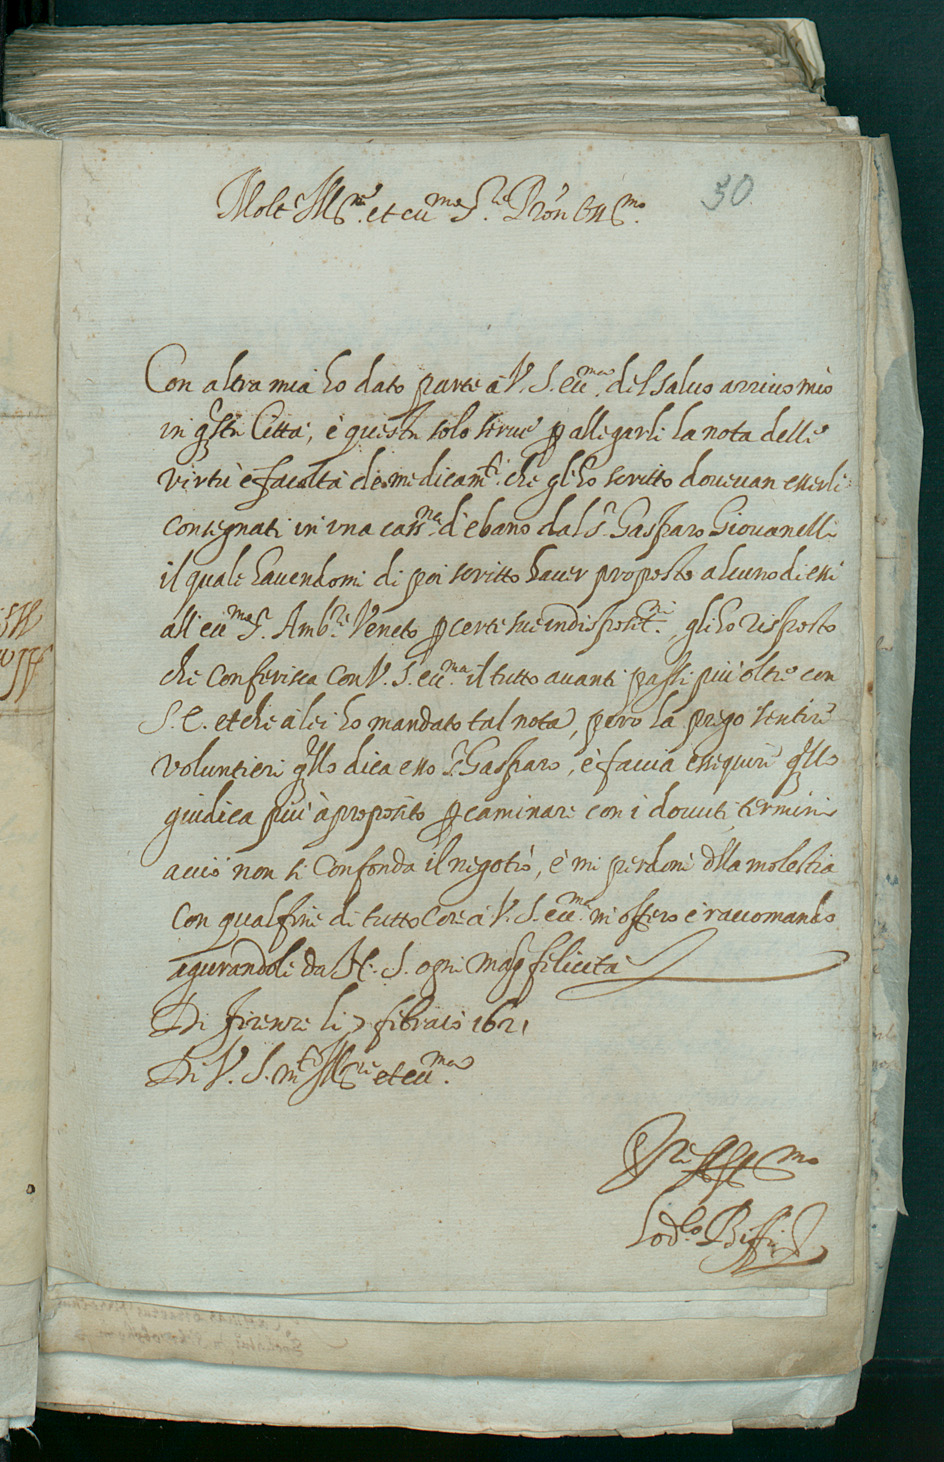 30
Molt' Ill.re et ecc.ma S.re Pron Oss.mo
Con altra mia ho dato parte à V. S. ecc.ma del saluo arriuo mio
in qsta Città, è questa solo serue p allegarli la nota delle
virtù è facoltà de medicam.ti che gli ho scritto doueuan esserli
consegnati in vna cass.na d'ebano dal S.r Gasparo Giouanelli
il quale hauendomi di poi scritto hauer proposto alcuno di essi
all'ecc.mo S.r Amb.re Veneto p certe sue indisposit.ni, gli ho risposto
che conferisca con V. S. ecc.ma il tutto auanti passi più oltre con
S. E. et che à lei ho mandato tal nota, però la prego sentire
voluntieri qllo dica esso S.r Gasparo, è faccia essequire qllo
giudica più à proposito p caminare con i douuti termini
acciò non si confonda il negotio, è mi perdoni dlla molestia
con qual fine di tutto core à V. S. ecc.ma mi offero è raccomando
agurandoli da N. S. ogni magg felicità
Di Firenze li 7 febraio 1621
Di V. S. m.to Ill.re et ecc.ma
Ser.re Aff.mo
Lod.co Biffi